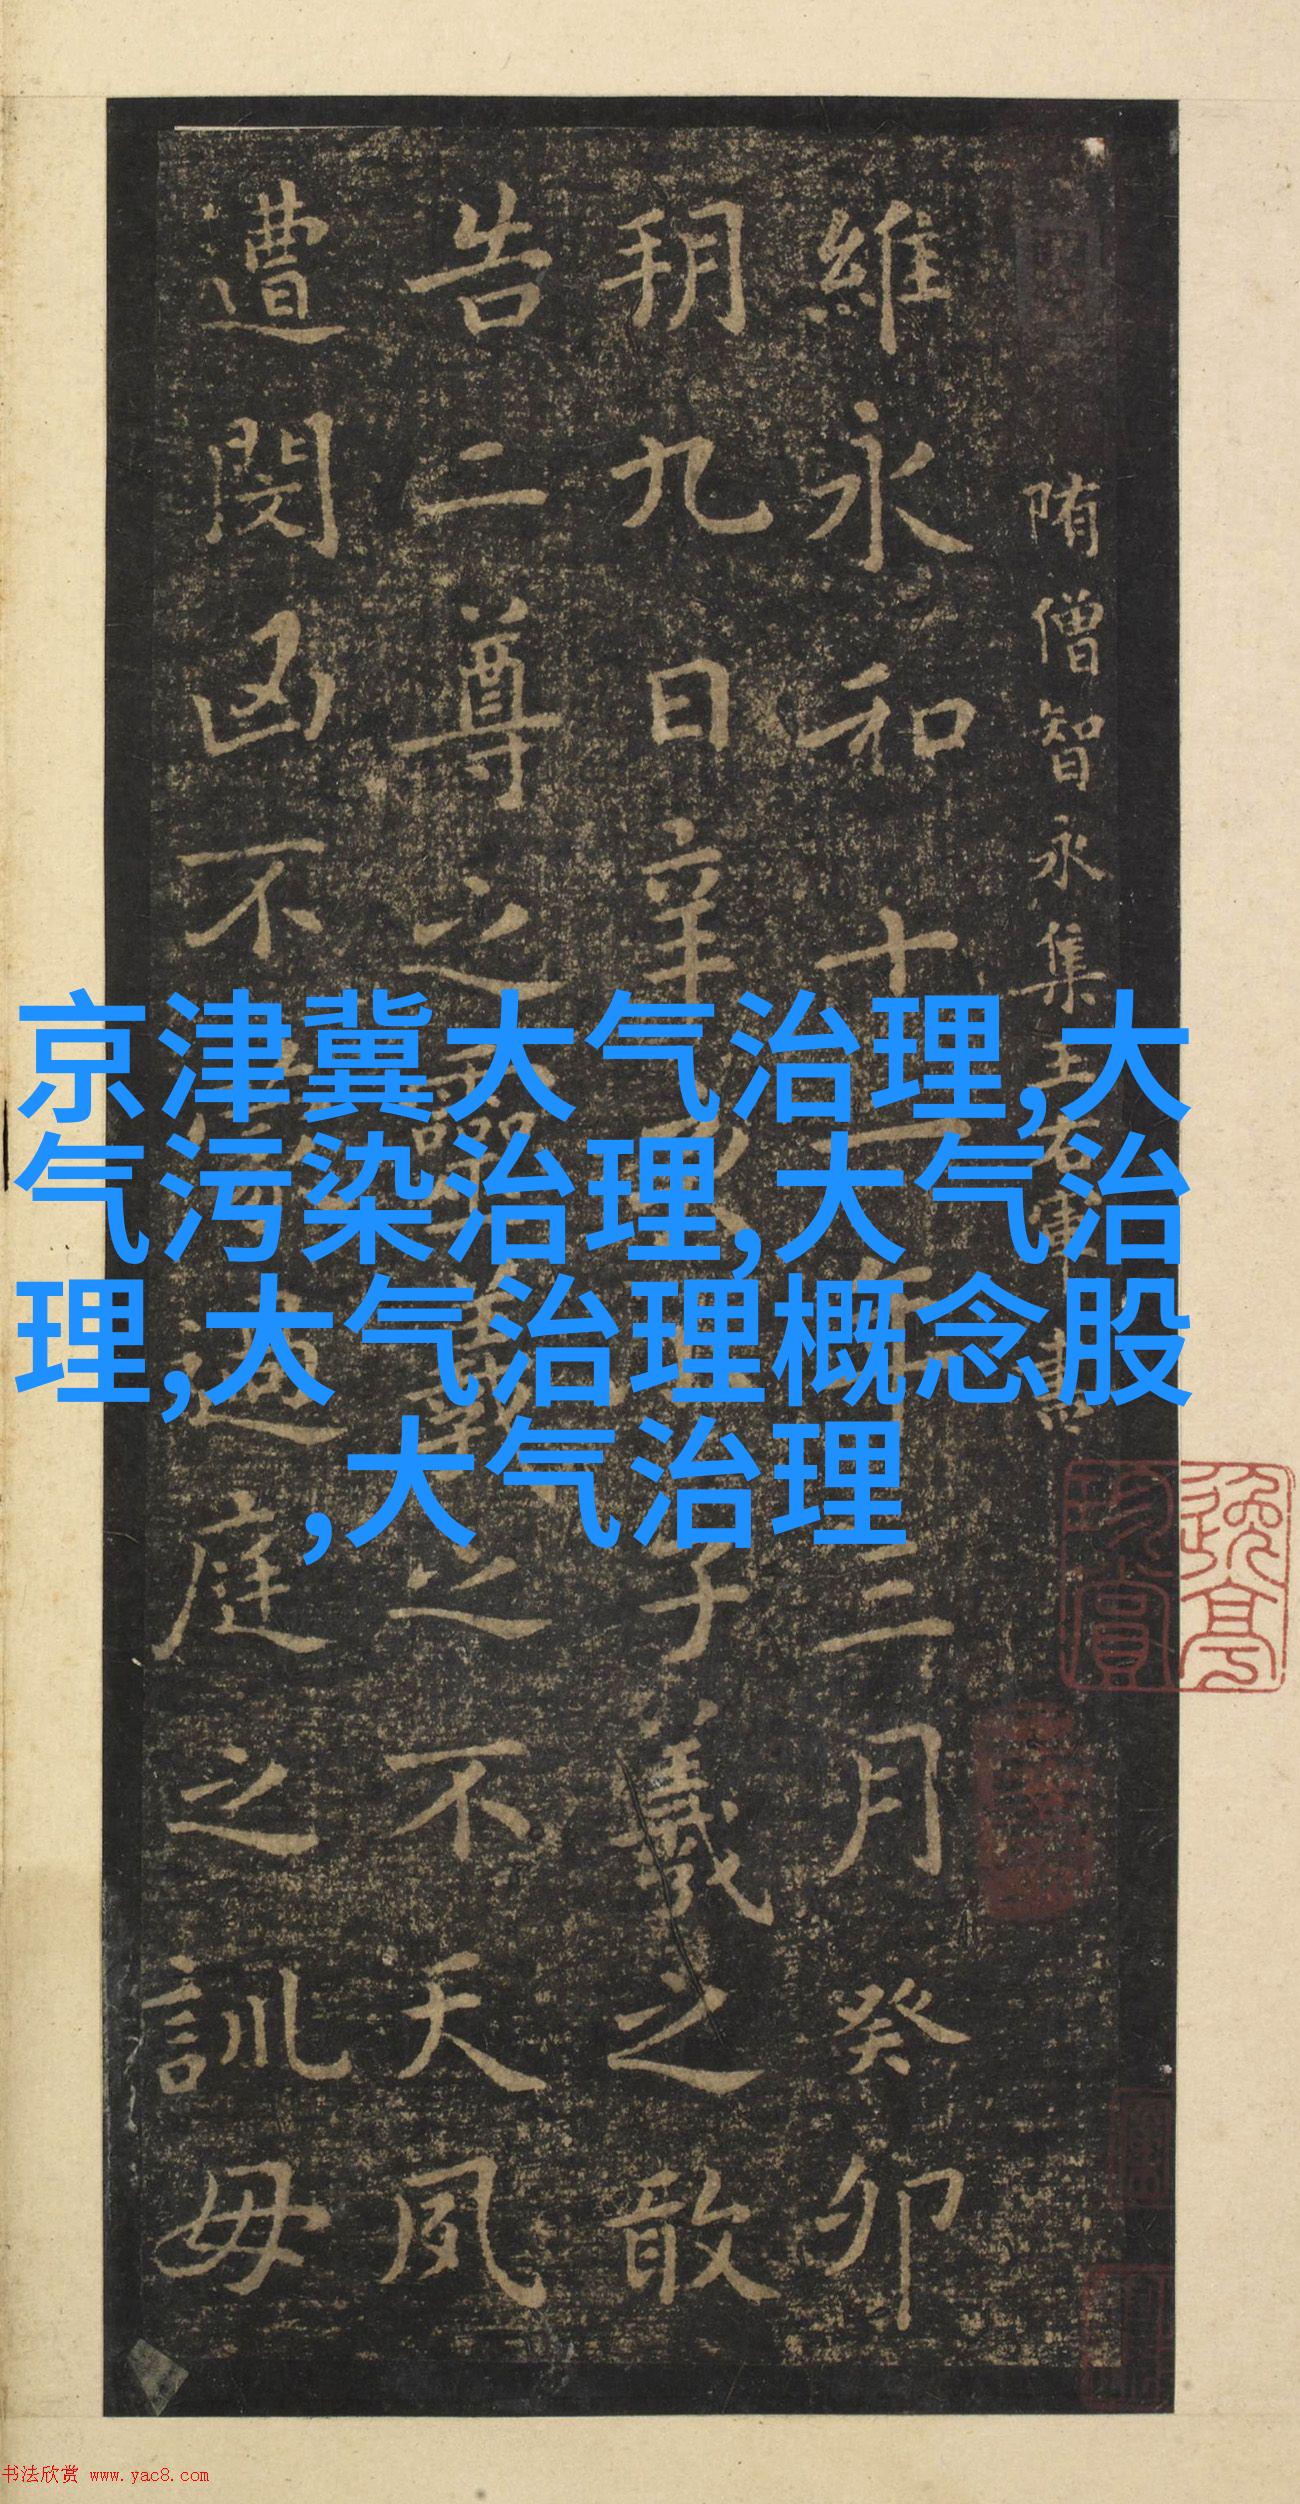 隋僧智永集王右軍書
維永和十一年三月癸卯
朔九日辛亥小子羲之敢
告二尊之靈羲之不天夙
遭閔凶不蒙過庭之訓毋
京津冀大气治理,大
气污染治理,大气治
理,大气治理概念股
,大气治理
书法欣赏 www.yac8.com